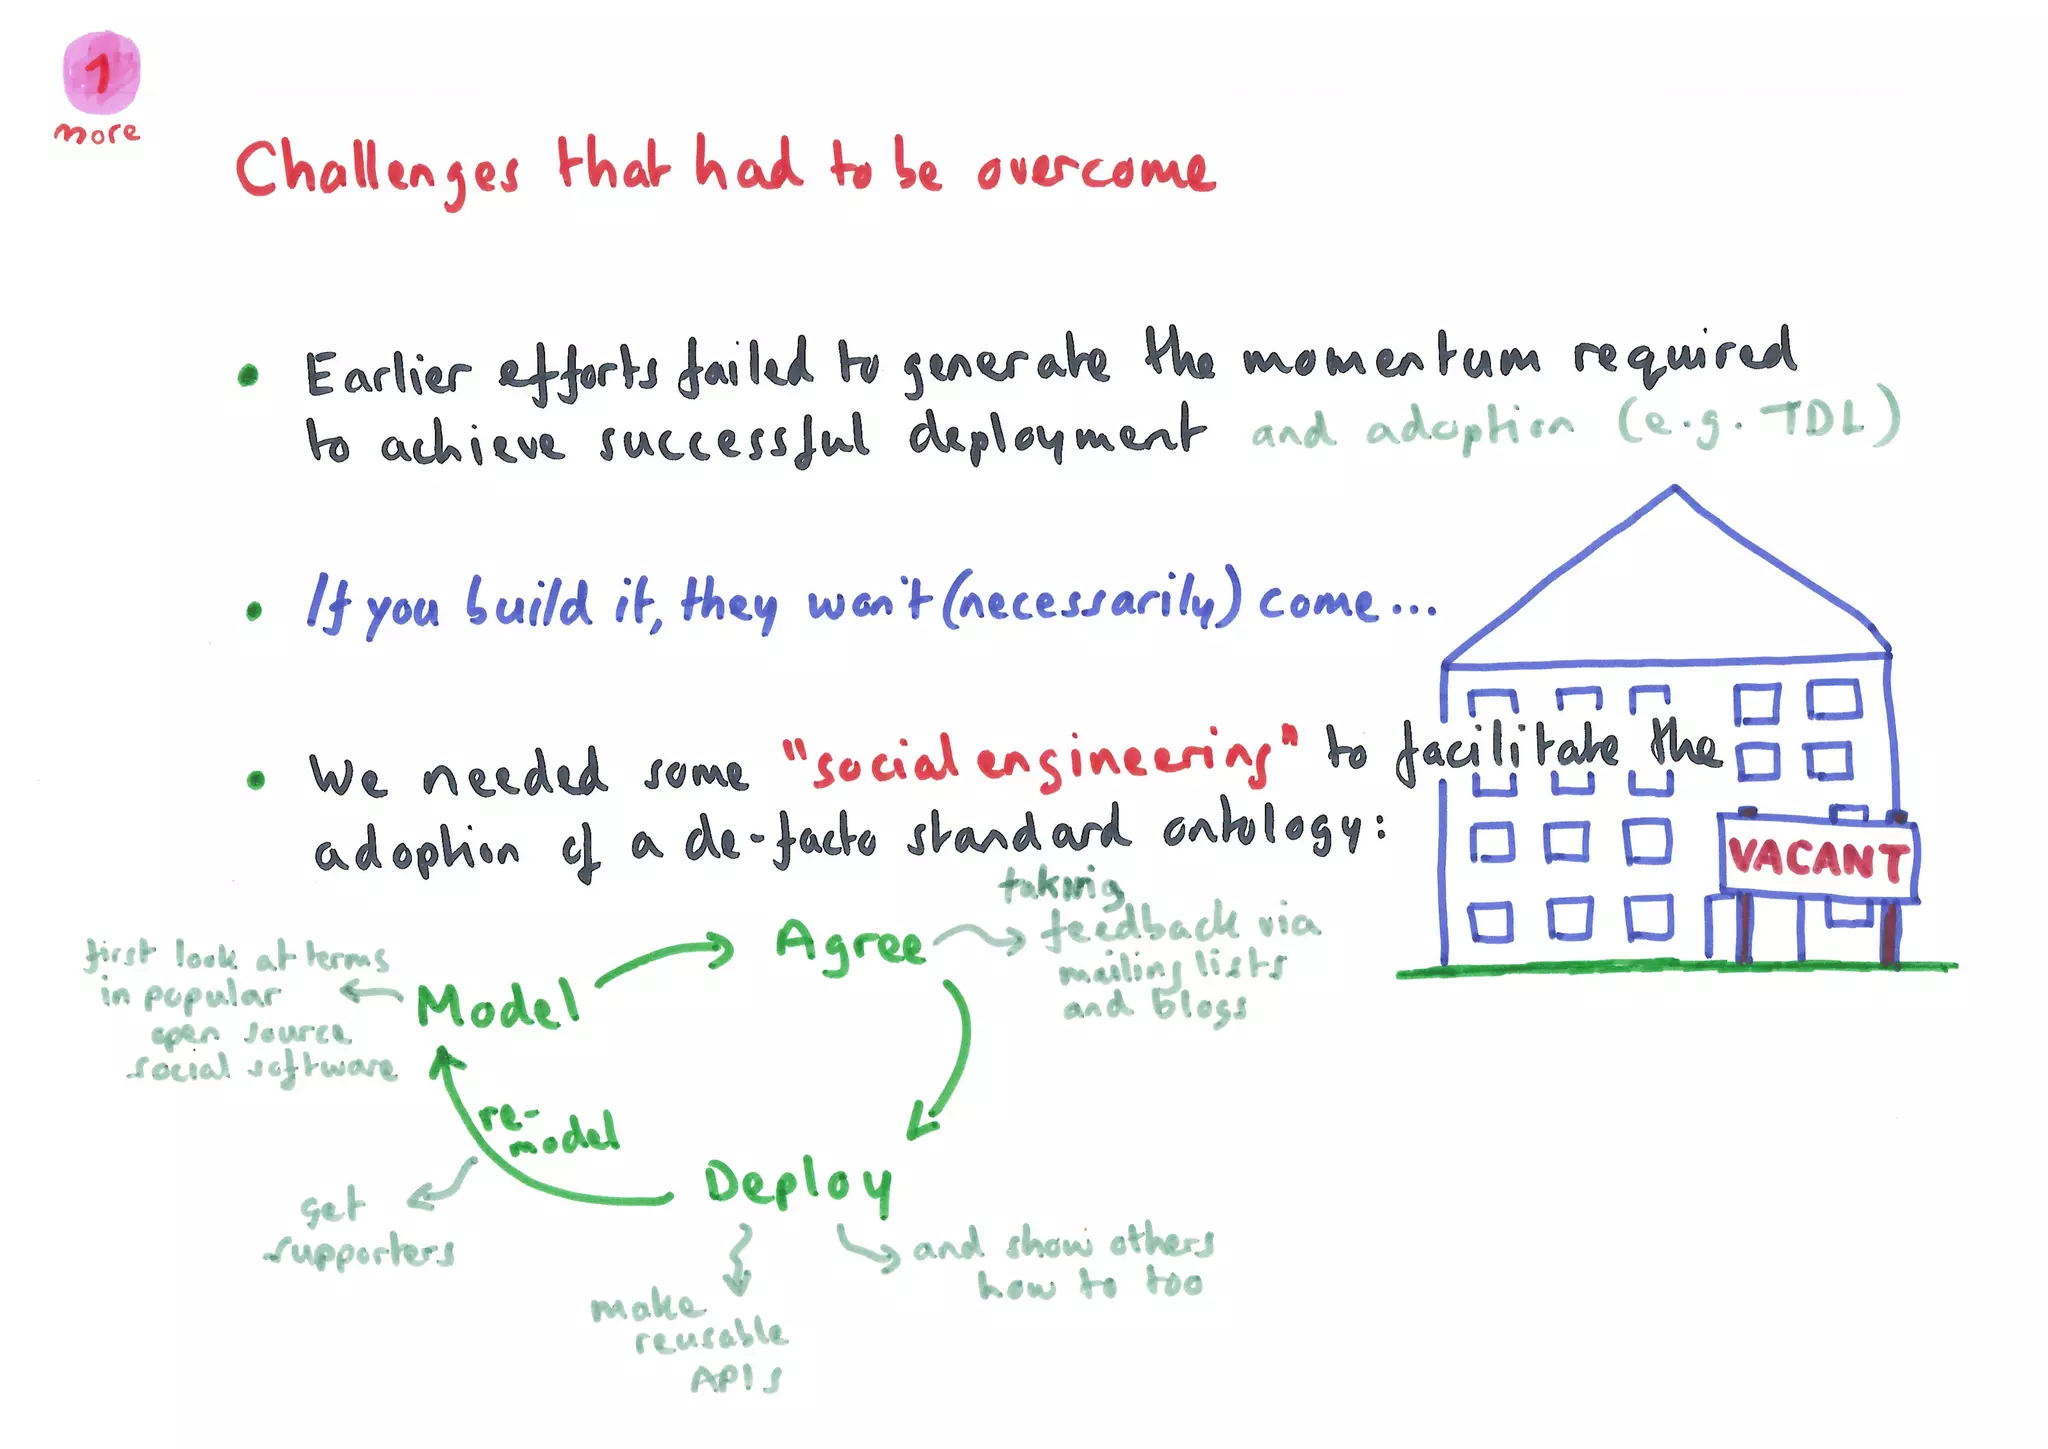 1
more
Challenges that had to be overcome
• Earlier efforts failed to generate the momentum required
to achieve successful deployment and adoption (e.g. TDL)
• If you build it, they won't (necessarily) come...
• We needed some "social engineering" to facilitate the
adoption of a de-facto standard ontology:
VACANT
Agree
taking
feedback via
mailing lists
and blogs
Model
first look at terms
in popular
open source
social software
re-
model
get
supporters
Deploy
and show others
how to too
make
reusable
APIs